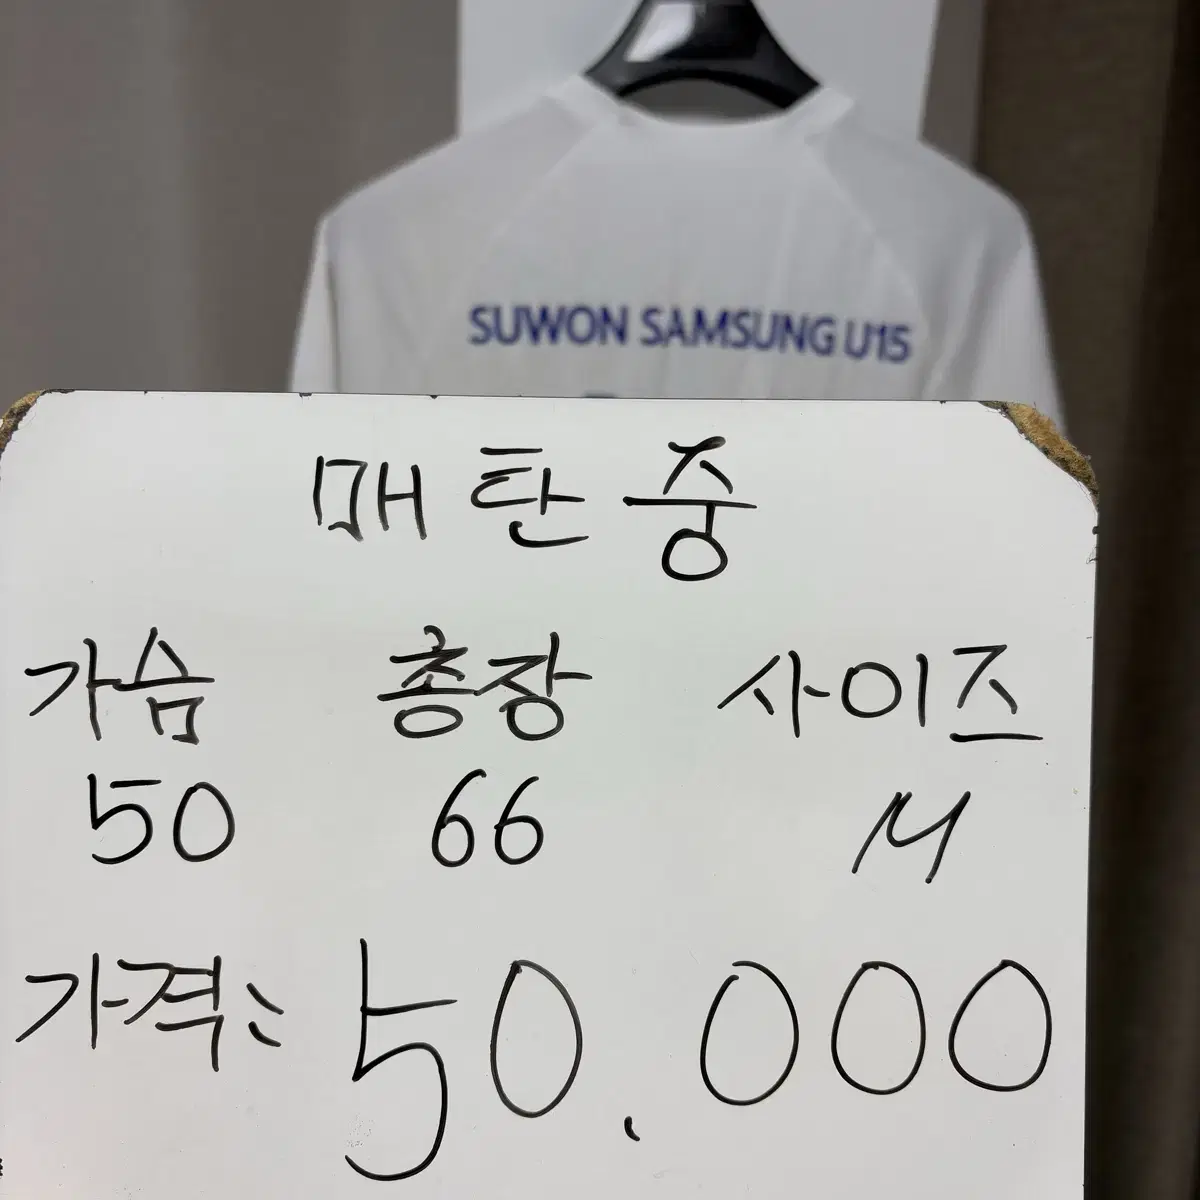 SUWON SAMSUNG U15
매탄중
가슴 총장 사이즈
50 66 M
가격: 50,000